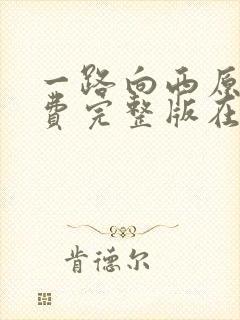 一路向西原
费完整版在
肯德尔